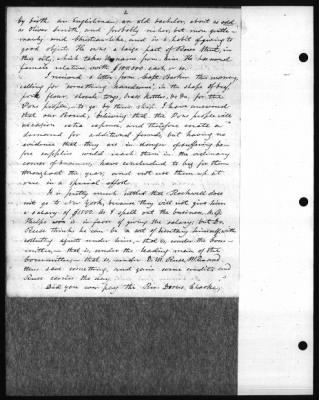 2
by birth an Englishman, an old bachelor, about as old
as Oliver Smith and probably richer, but more gentle-
manly and Christian-like, and is liberal in giving to
good objects. He owns a large part of Rowe Street, in
this city, which takes its name from him. He has several
females relatives with $100,000 each, or so.
I received a letter from Capt. Barker this morning
calling for something handsome, in the shape of beef,
pork, flour, sheep, tea kettles, &c &c, for the
people to go by their ship. I have answered
that our Board, believing that the people will
occasion extra expense and therefore create a
demand for additional funds, but having no
evidence that they are in danger of suffering be-
fore supplies would reach them in the ordinary
course of business, have concluded to beg for them
throughout the year, and not use them up at
once in a special effort.
It is pretty much settled that Rockwell does
not go to New York, because they will not give him
a salary of $1800. As I spell out the business,
Phelps was in favor of giving the salary, but Dr.
Reese thinks he can be a sort of Secretary himself with
collecting agents under him, — that is, under the Com-
mittee — that is, under the leading man of the
Committee — that is, under D. M. Reese,
thus save something, and gain some credit and
Reese carries the day.
Did you ever pay the Rev. Dorus Clarke,